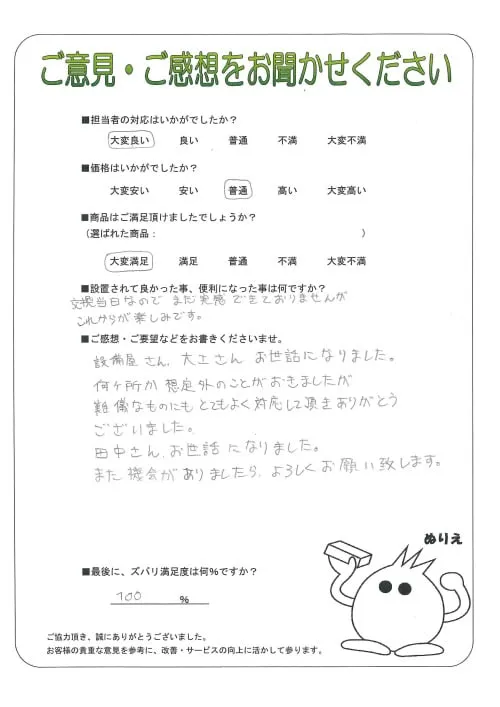 ご意見・ご感想をお聞かせください
■担当者の対応はいかがでしたか?
大変良い 良い 普通 不満 大変不満
■価格はいかがでしたか?
大変安い 安い 普通 高い 大変高い
■商品はご満足頂けましたでしょうか?
(選ばれた商品: )
大変満足 満足 普通 不満 大変不満
■設置されて良かった事、便利になった事は何ですか?
交換当日なので まだ実感 できておりませんが
これからが楽しみです。
■ご感想・ご要望などをお書きくださいませ。
設備屋さん、大工さん お世話になりました。
何ヶ所か 想定外のことがおきましたが
難儀なものにもとてもよく対応して頂きありがとう
ございました。
田中さん、お世話になりました。
また機会がありましたら、よろしくお願い致します。
ぬりえ
■最後に、ズバリ満足度は何%ですか?
100 %
ご協力頂き、誠にありがとうございました。
お客様の貴重な意見を参考に、改善・サービスの向上に活かして参ります。